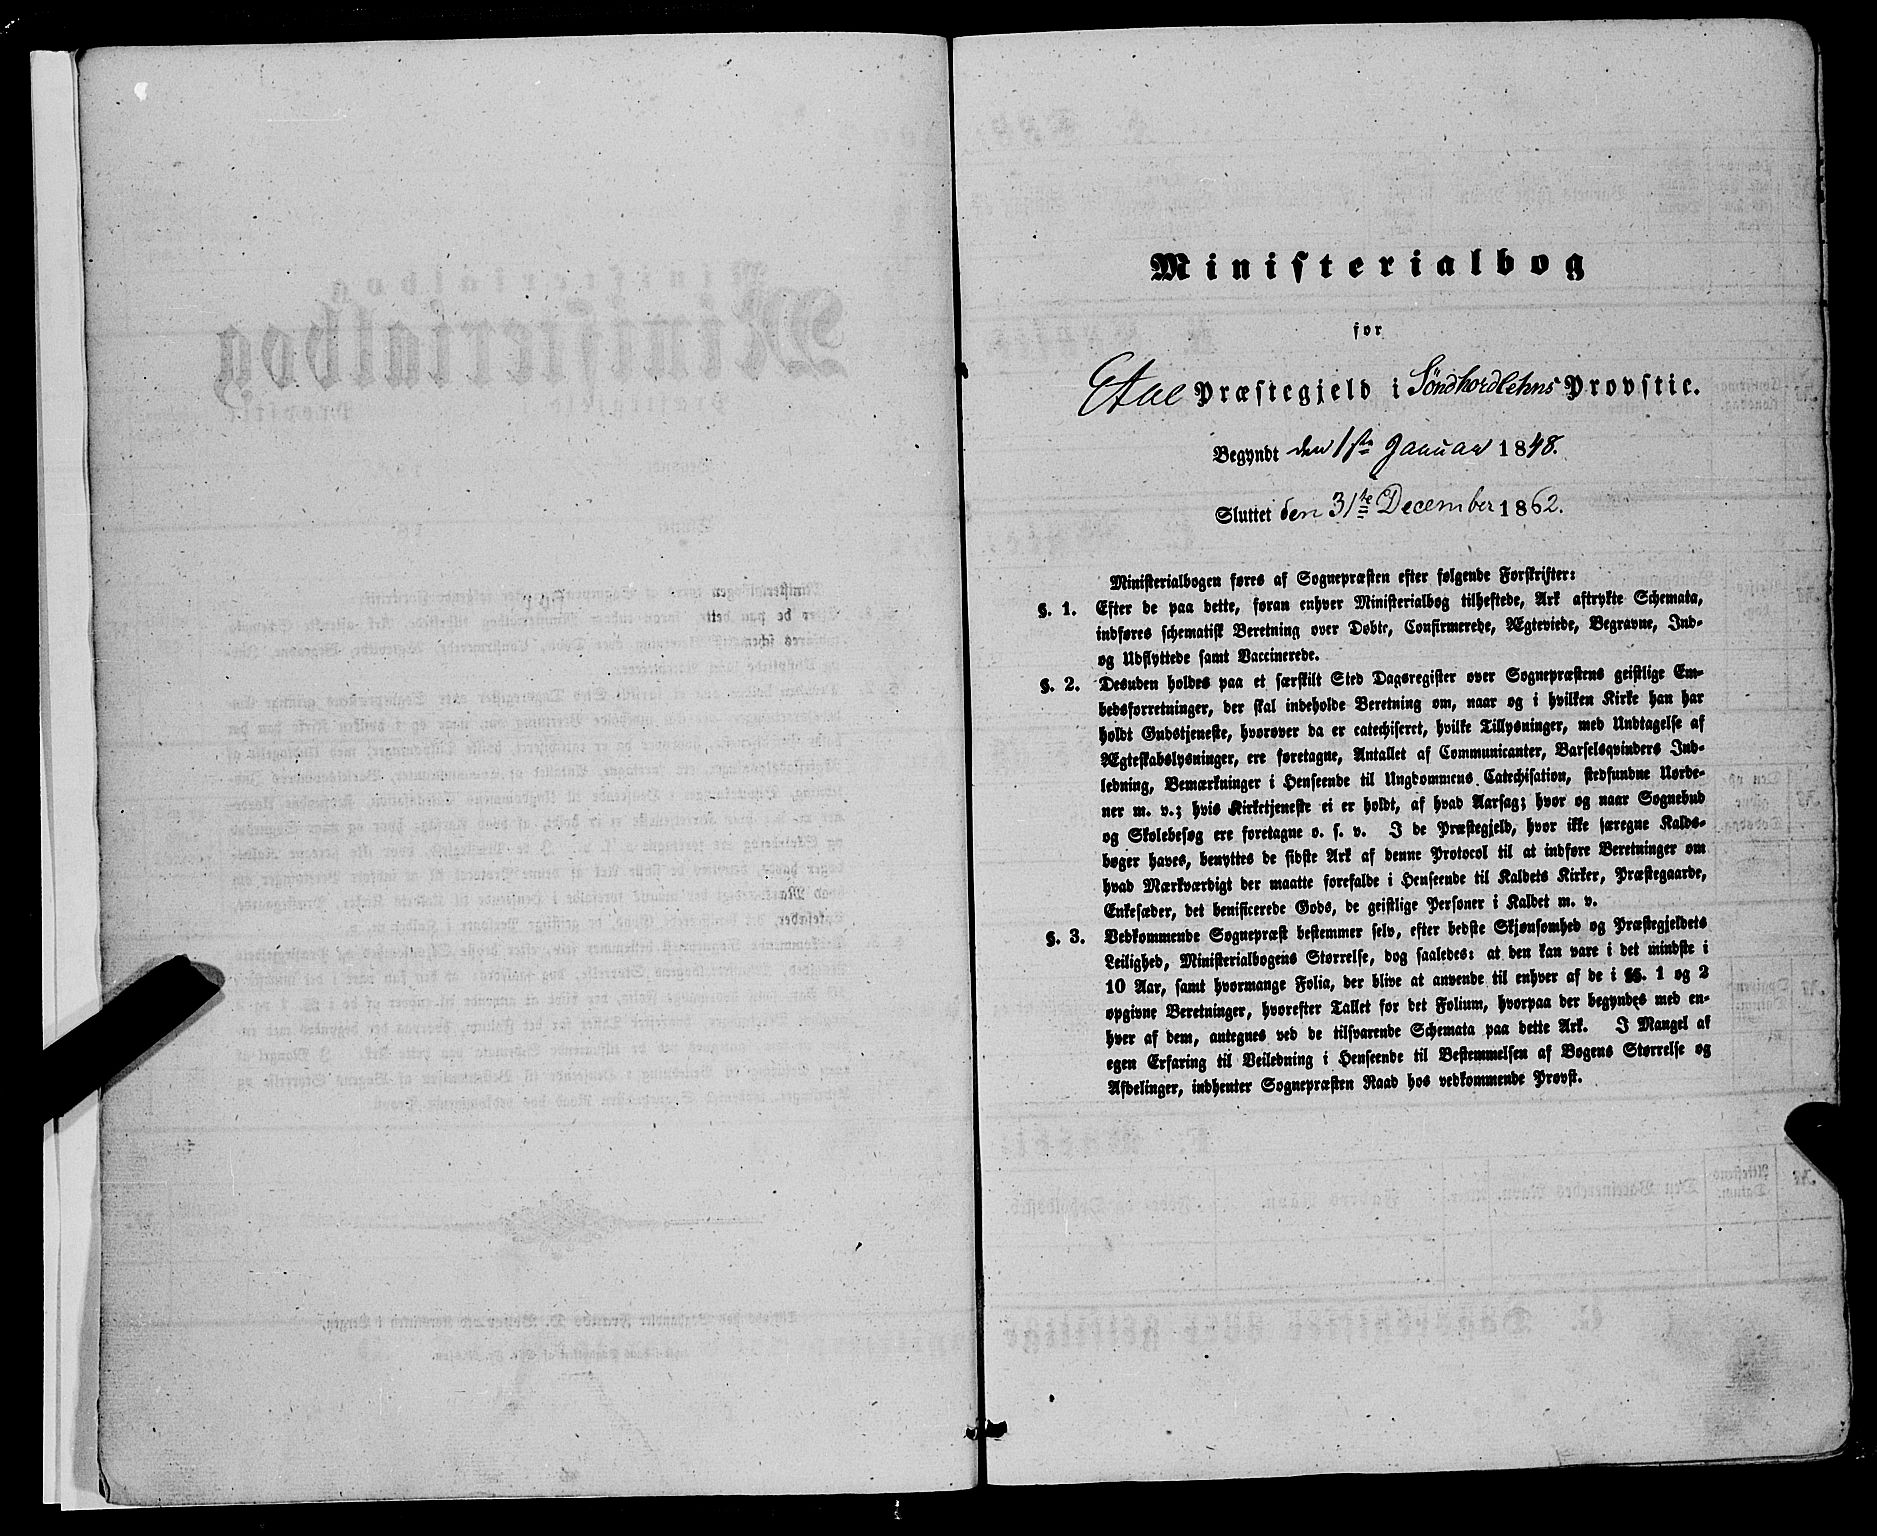 Ministerialbog
for
Etne Præstegjeld i Söndhordlehns Provstie.
Begyndt den 1ste Januar 1848.
Sluttet den 31te December 1862.
Ministerialbogen føres af Sognepræsten efter følgende Forskrifter:
§. 1. Efter de paa dette, foran enhver Ministerialbog tilheftede, Ark aftrykte Schemata,
indføres schematisk Beretning over Døbte, Confirmerede, Ægteviede, Begravne, Ind-
og Udflyttede samt Vaccinerede.
§. 2. Desuden holdes paa et særskilt Sted Dagsregister over Sognepræstens geistlige Em-
bedsforretninger, der skal indeholde Beretning om, naar og i hvilken Kirke han har
holdt Gudstjeneste, hvorover da er catechiseret, hvilke Tillysninger, med Undtagelse af
Ægteskabslysninger, ere foretagne, Antallet af Communicanter, Barselqvinders Ind-
ledning, Bemærkninger i Henseende til Ungdommens Catechisation, stedfundne Uorde-
ner m. v.; hvis Kirketjeneste ei er holdt, af hvad Aarsag; hvor og naar Sognebud
og Skolebesøg ere foretagne o. s. v. I de Præstegjeld, hvor ikke særegne Kalds-
bøger haves, benyttes de sidste Ark af denne Protocol til at indføre Beretninger om
hvad Mærkværdigt der maatte forefalde i Henseende til Kaldets Kirker, Præstegaarde,
Enkesæder, det beneficerede Gods, de geistlige Personer i Kaldet m. v.
§. 3. Vedkommende Sognepræst bestemmer selv, efter bedste Skjønsomhed og Præstegjeldets
Leilighed, Ministerialbogens Størrelse, dog saaledes: at den kan vare i det mindste i
10 Aar, samt hvormange Folia, der blive at anvende til enhver af de i §§. 1 og 2
opgivne Beretninger, hvorefter Tallet for det Folium, hvorpaa der begyndes med en-
hver af dem, antegnes ved de tilsvarende Schemata paa dette Ark. I Mangel af
egen Erfaring til Veiledning i Henseende til Bestemmelsen af Bogens Størrelse og
Afdelinger, indhenter Sognepræsten Raad hos vedkommende Provst.